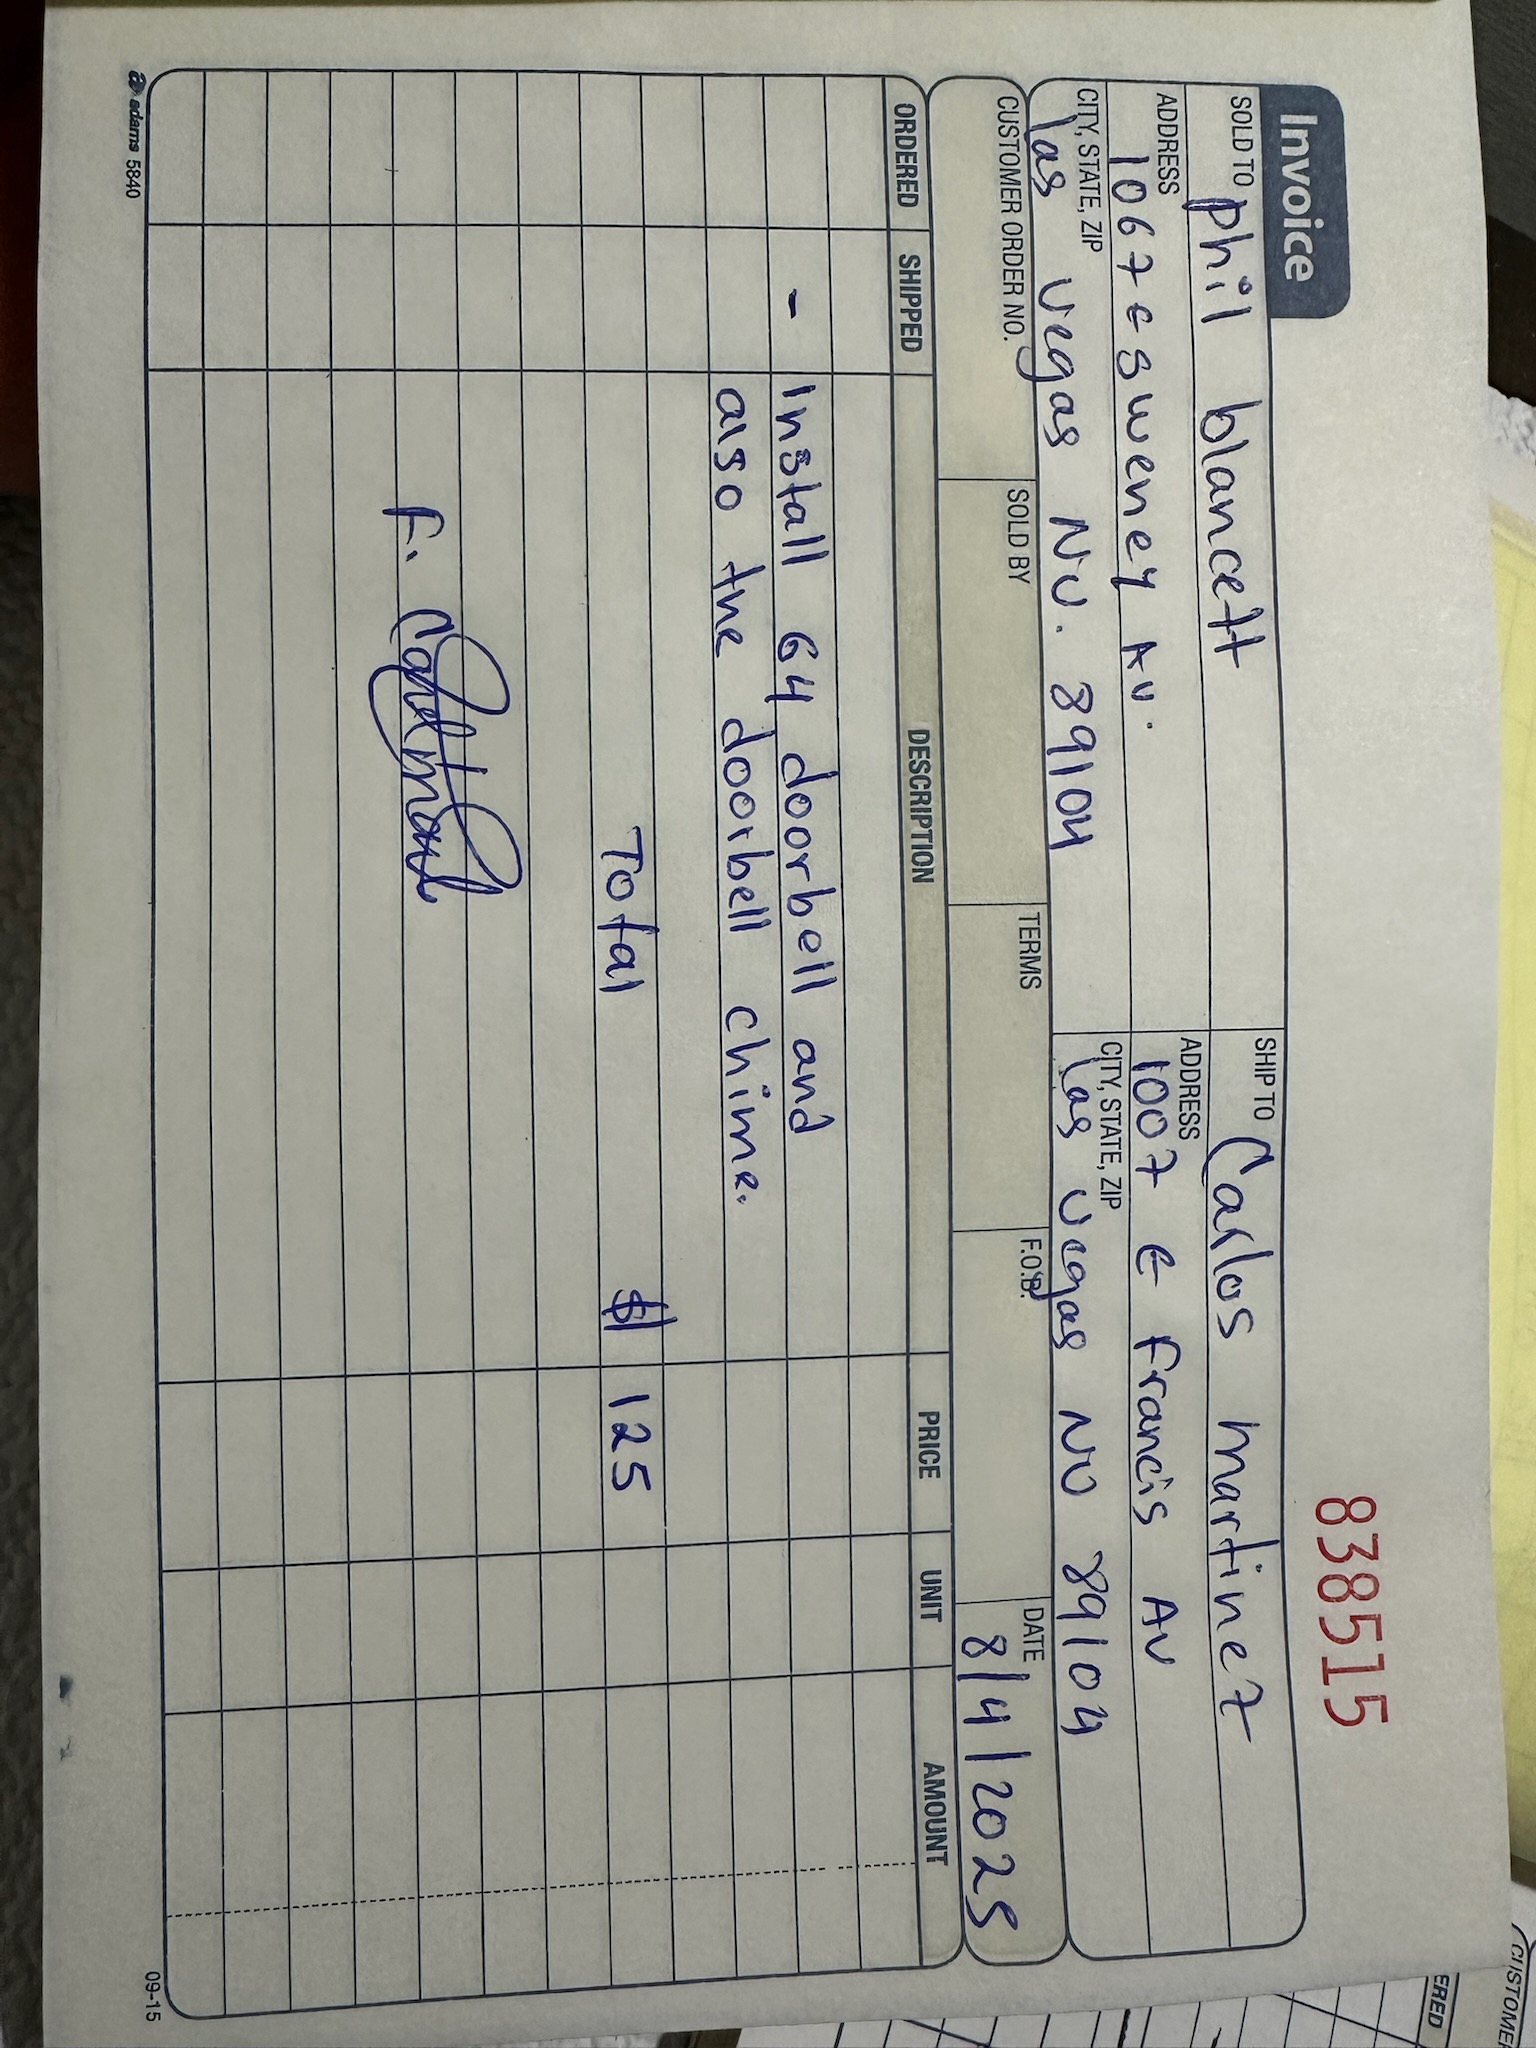 Invoice
838515
SOLD TO phil blancett
SHIP TO Carlos martinez
ADDRESS 1067 E sweney AV.
ADDRESS 1007 E francis AV
CITY, STATE, ZIP las vegas NV. 89104
CITY, STATE, ZIP las vegas NV 89104
CUSTOMER ORDER NO. SOLD BY TERMS F.O.B. DATE 8/4/2025
ORDERED SHIPPED DESCRIPTION PRICE UNIT AMOUNT
- Install 64 doorbell and
also the doorbell chime.
Total $ 125
F.
adams 5840
09-15
CUSTOMER
ERED